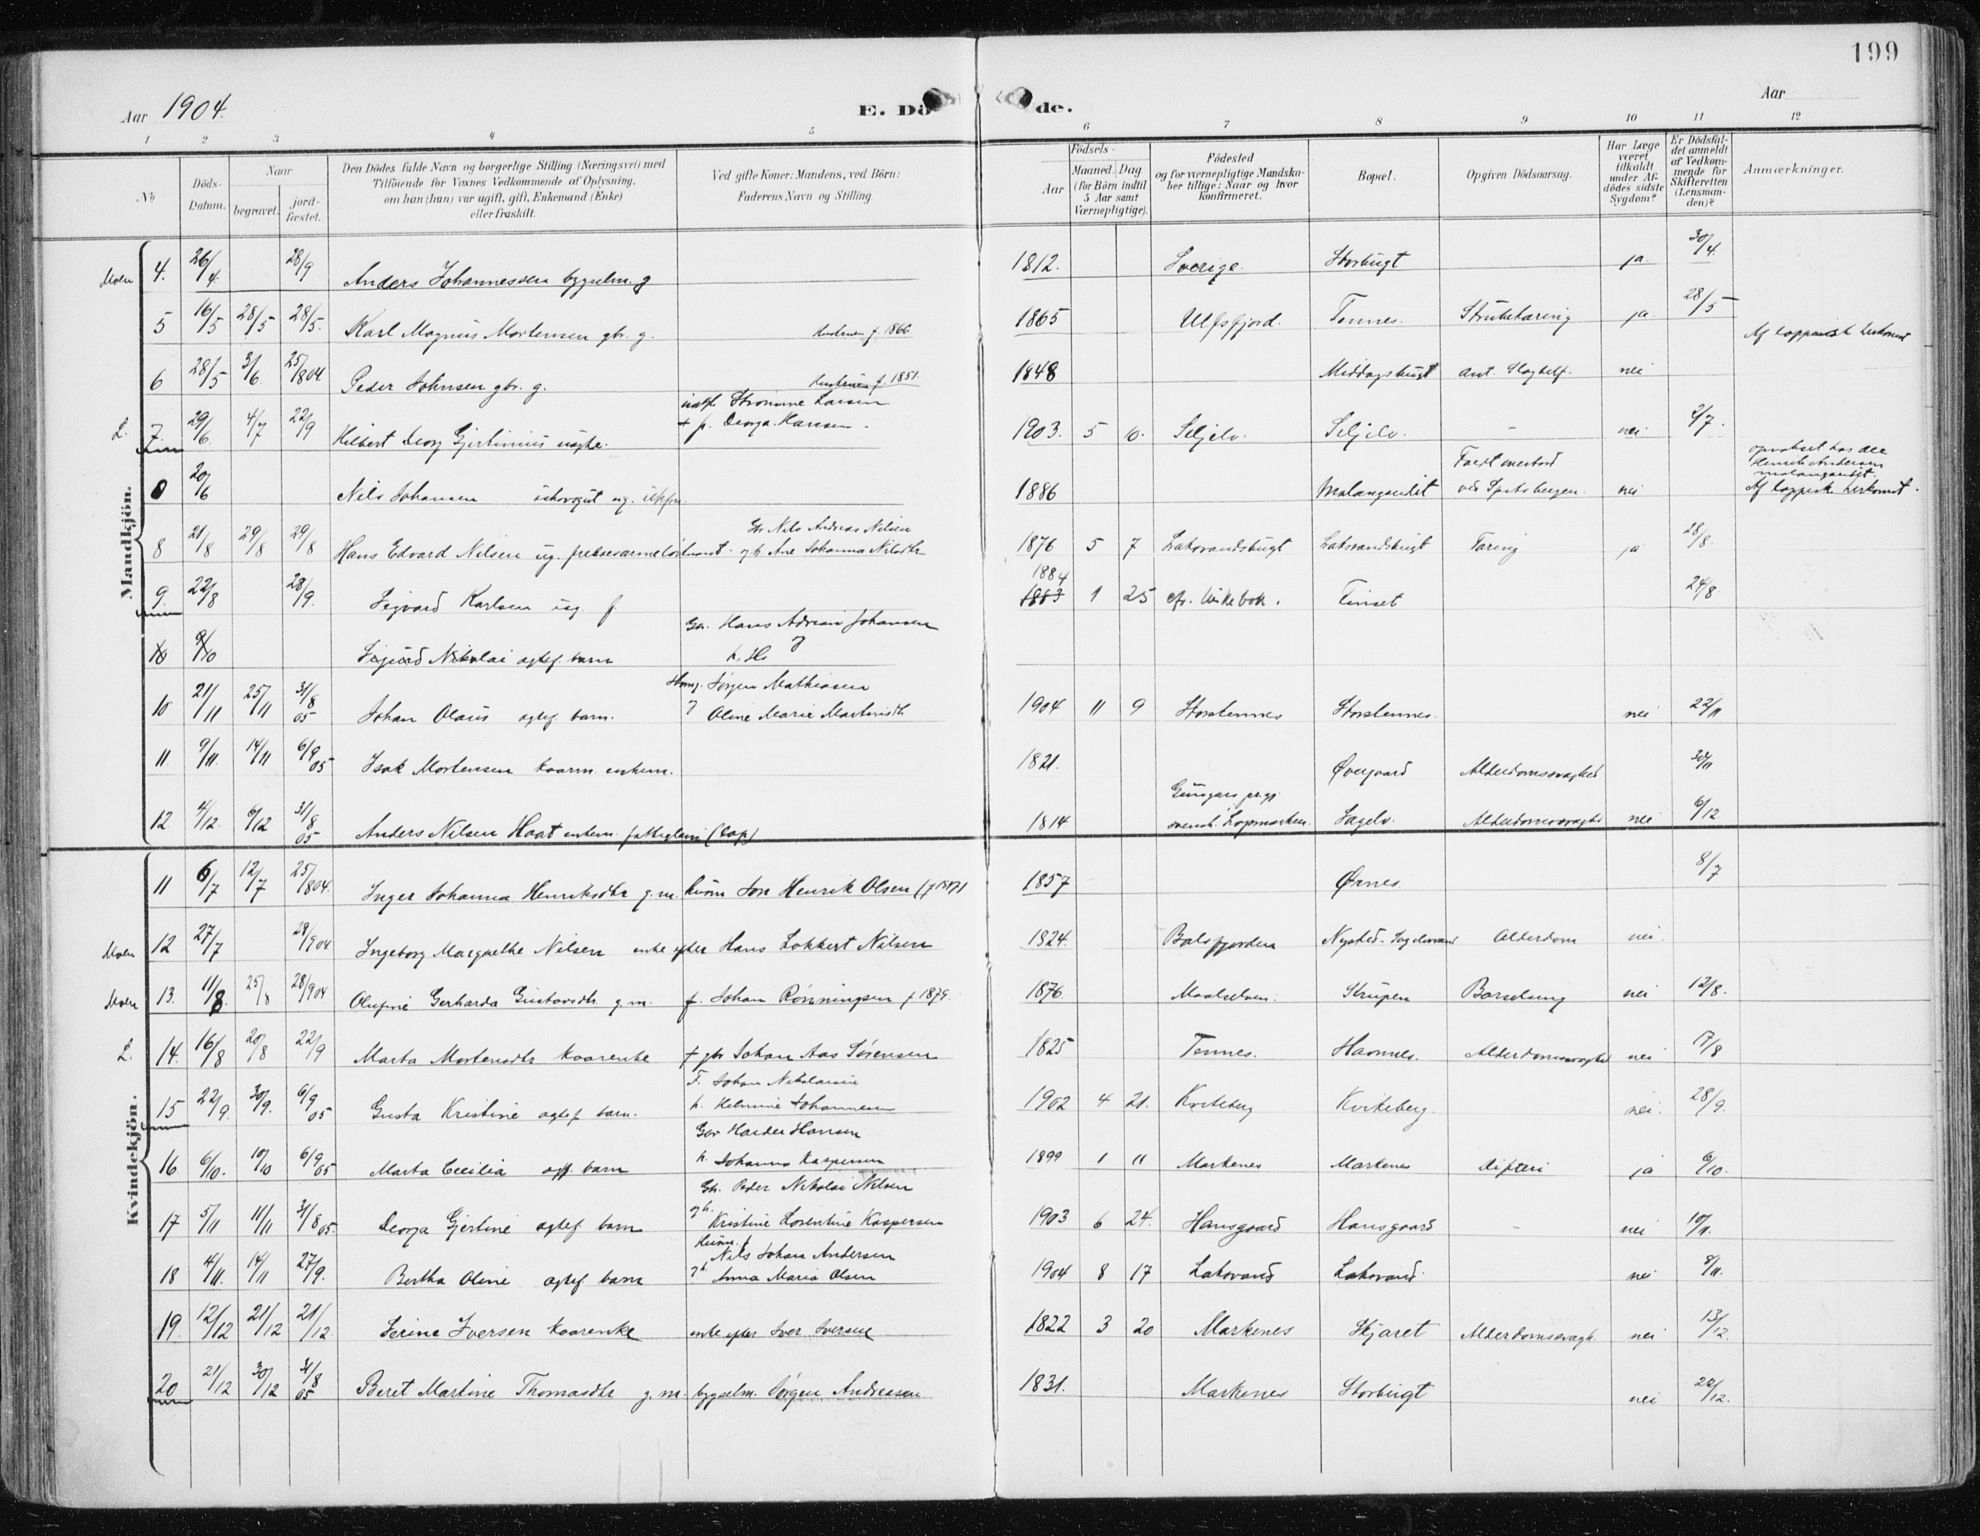 199
Aar 1904.
E. Dö de.
Aar
1 2 3 4 5 6 7 8 9 10 11 12
No
Döds-Datum.
Naar
begravet.
jordfæstet.
Den Dödes fulde Navn og borgerlige Stilling (Næringsvei) med
Tilföiende for Voxnes Vedkommende af Oplysning,
om han (hun) var ugift, gift, Enkemand (Enke)
eller fraskilt.
Ved gifte Koner: Mandens, ved Börn:
Faderens Navn og Stilling.
Födsels-
Aar
Maaned. Dag
(for Börn indtil
5 Aar samt
Værnepligtige).
Födested
og for værnepligtige Mandskaber tillige: Naar og hvor
Konfirmeret.
Bopæl.
Opgiven Dödsaarsag.
Har Læge
været
tilkaldt
under Afdödes sidste
Sygdom?
Er Dödsfaldet anmeldt
af Vedkommende for
Skifteretten
(Lensmanden)?
Anmærkninger.
Mandkjön.
Moen 4. 26/4 28/9 Anders Johannessen bygselm. g 1812. Sverige. Storbugt ja 30/4.
5 16/5 28/5 28/5. Karl Magnus Mortensen gbr. g. Kustruen f. 1866 1865 Ulfsfjord. Tennes. Strubetæring ja 28/5 Af lappisk herkomst
6 28/5 3/6. 25/8 04. Peder Johnsen gbr. g. Kustruen f. 1851 1848 Middagsbugt ant. Slagtilf. nei
L. 7. 29/6. 4/7 22/9 Hilbert Georg Gjertinius uægte. Strømme Larsen
+ p. Georga Hansen. 1903. 5 10. Seljelv. Seljelv. - nei 2/7.
20/6 Nils Johansen ug. 1886 Malangseidet Faret
ved Spitsbergen. nei Henrik Andersen
malangseidet.
Af lappisk herkomst.
8 21/8 29/8 29/8 Hans Edvard Nilsen ug. frelsesarmelöitnant. Gbr. Nils Andreas Nilsen
og h. Ane Johanna Nilsdtr 1876 5 7 Laksvandsbugt Laksvandsbugt Tæring ja 28/8.
9. 22/8 28/9. Sigvard Karlsen ug. f. 1884 1883 1 25 cfr. kirkebok. Finset 24/8.
10 9/10 Sigurd Nikolai ægtef. barn Gbr. Hans Adrian Johansen
10 21/11 25/11 31/8 05 Johan Olaus ægtef. barn. Jørgen Mathiasen
Oline Marie Martinsdtr 1904 11 9 Storstennes Storstennes. nei 22/11
11. 9/11. 14/11 6/9 05 Isak Mortensen kaarm. enkem. 1821. Øvergaard Alderdomssvaghed 30/11
12 4/12. 6/12 31/8 05 Anders Nilsen Haat enkem. fattiglem (lap) 1814 svensk. Lapmarken. Sagelv. Alderdomssvaghed nei 6/12
Kvindekjön.
11 6/7 12/7 25/8 04. Inger Johanna Henriksdtr g. m. husm Jon Henrik Olsen 1857 Ørnes. 8/7
Moen 12 27/7 28/9 04 Ingeborg Margrethe Nilsen enke efter Hans Lokkert Nilsen 1824. Balsfjorden Nysted - Sagelvvand Alderdom nei.
Moen 13. 11/8. 25/8 28/9 04 Olufine Gerharda Gustavsdtr g. m. f. Johan Rønningsen f 1879. 1876. Maalselven. Strupen Barselseng nei 12/8.
L. 14. 16/8 20/8 22/9 Marta Mortensdtr kaarenke + gbr Johan Aas Sørensen 1825 Tennes. Havnnes. Alderdomssvaghed nei 17/8
15 22/9. 30/9. 6/9 05 Gusta Kristine ægtef barn. F. Johan Nikolaisen
h. Helmine Johannesen 1902 4 21. Kviteberg Kviteberg. nei. 28/9.
16 6/10. 10/10 6/9 05 Marta Cecilia ægt. barn Gbr Harder Hansen
h. Johanna Kaspersen 1899 1 11 Markenes Markenes Difteri ja 6/10.
17 5/11 11/11 31/8 05. Georga Gjertine ægtef barn Gbr. Peder Nikolai Nilsen
og h. Kristine Lorentine Kaspersen 1903 6 24. Hansgaard Hansgaard - nei 10/11.
18 4/11. 14/11 27/9. Bertha Oline ægtef barn Husm. f. Nils Johan Andersen
og h. Anna Maria Olsen 1904 8 17 Laksvand Laksvand. nei 8/11.
19. 12/12 21/12 21/12. Serine Iversen kaarenke enke efter Iver Iversen 1822 3 20 Markenes Skjæret Alderdomssvagh. nei 13/12.
20 21/12 30/12 31/8 05 Beret Martine Thomasdtr g. m. bygselm. Jørgen Andreasen 1831. Markenes Storbugt nei 22/12.